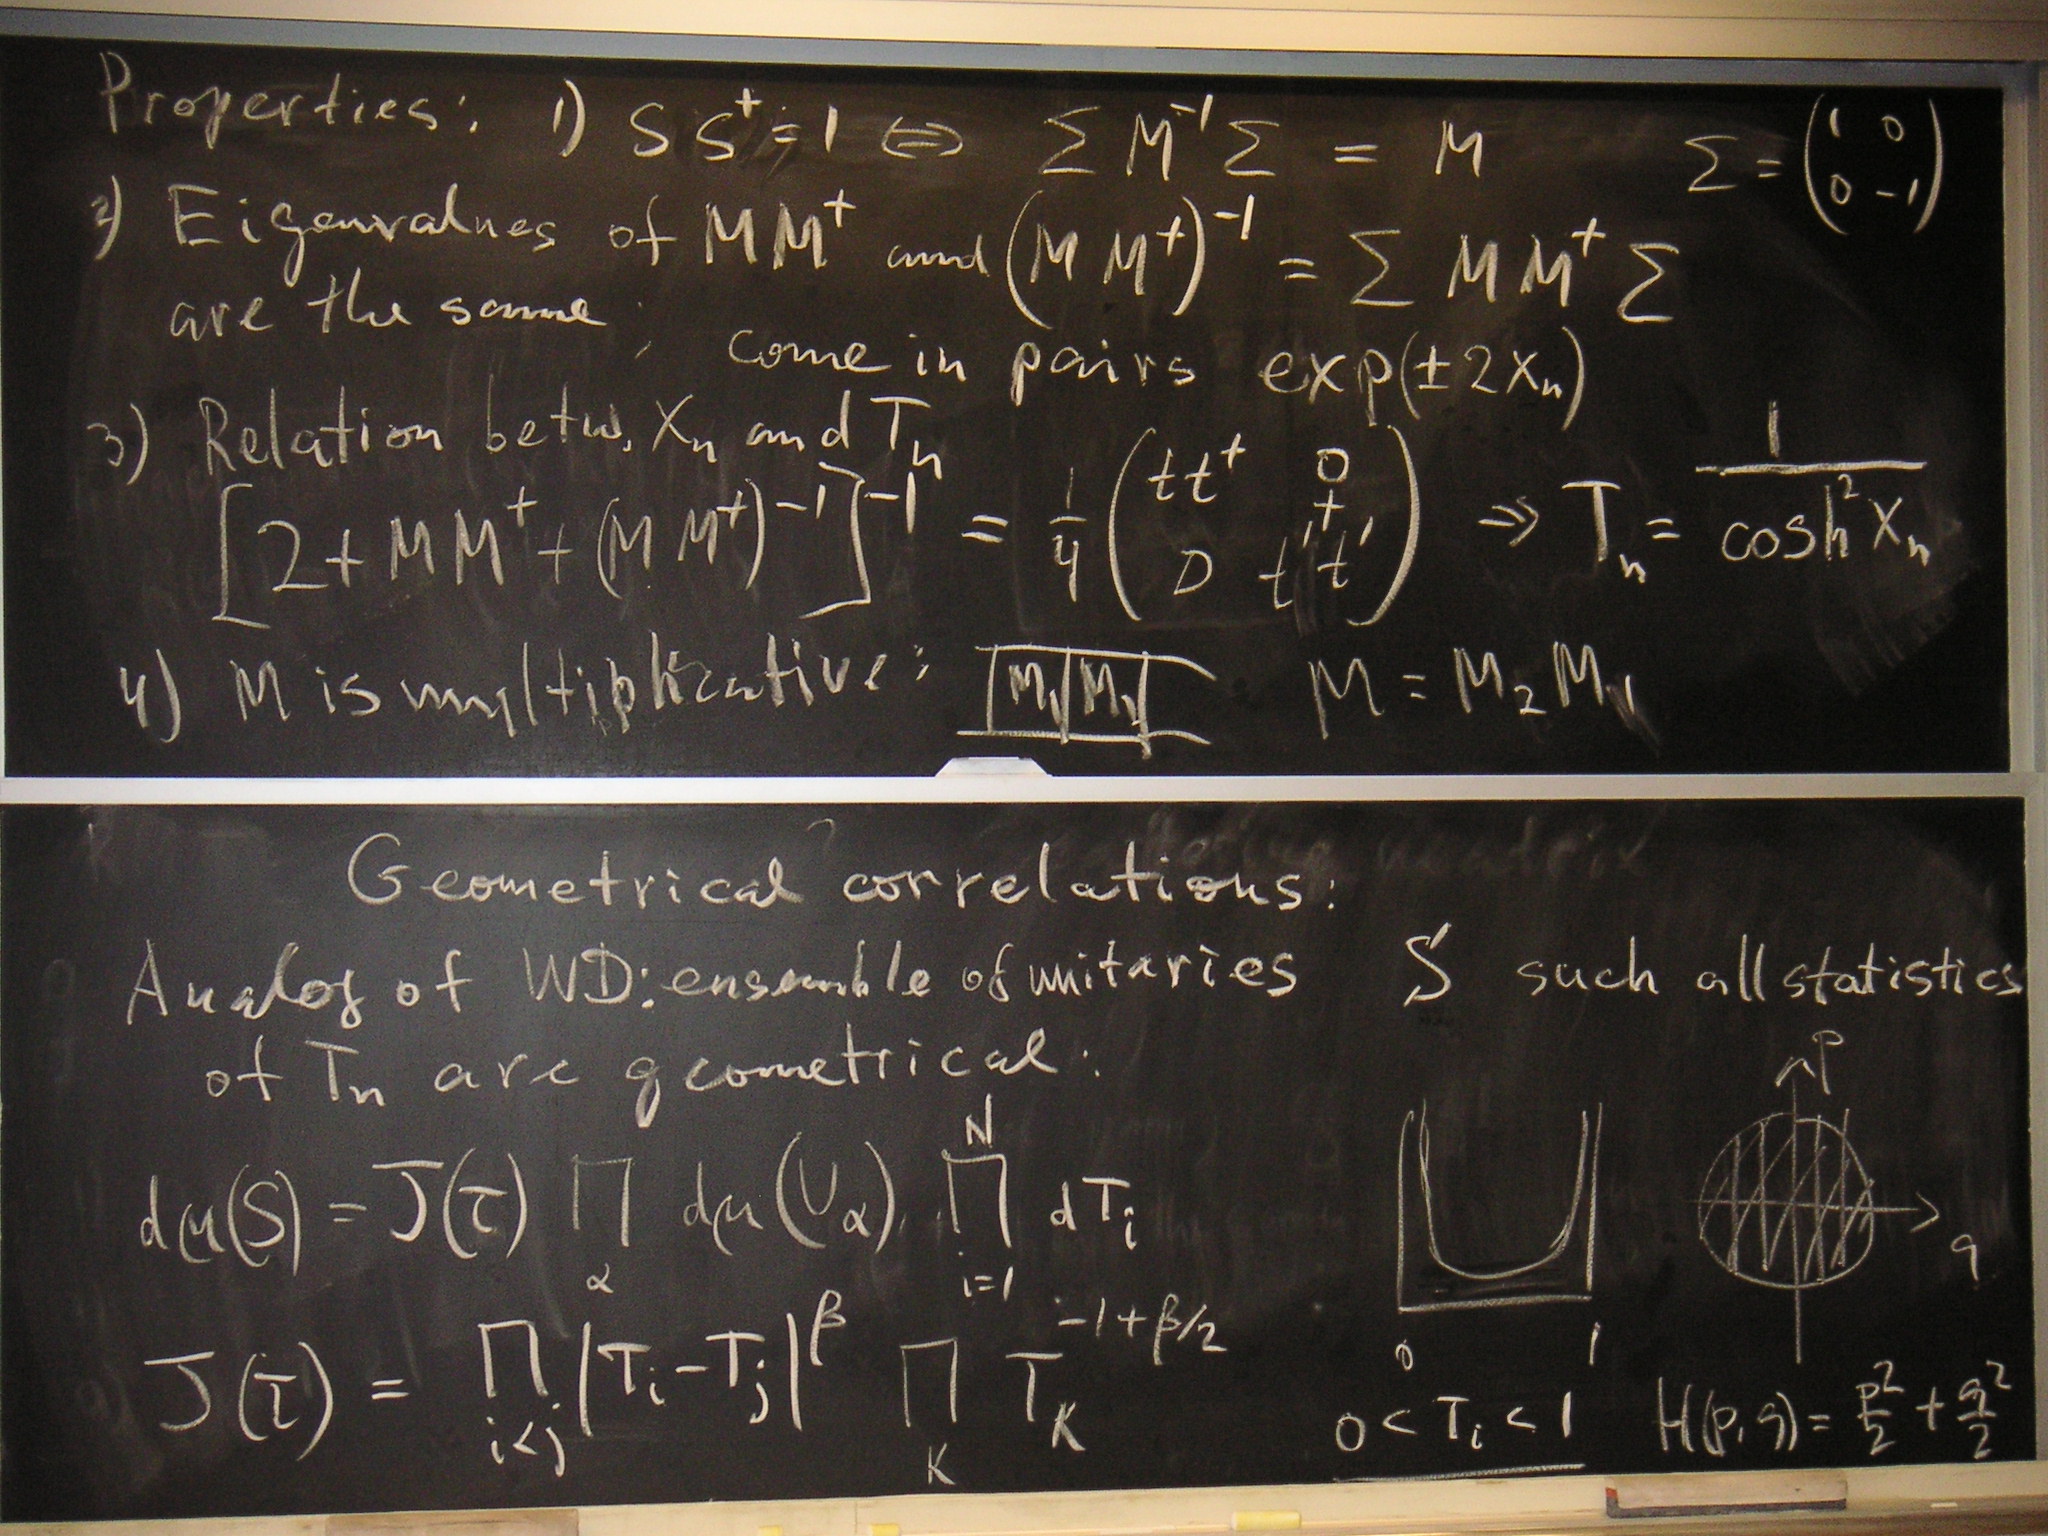 Properties: 1) S S⁺ = 1 ⇔ Σ M⁻¹ Σ = M Σ = (1 0 0 -1)
2) Eigenvalues of M M⁺ and (M M⁺)⁻¹ = Σ M M⁺ Σ
are the same; come in pairs exp(± 2xₙ)
3) Relation betw. xₙ and Tₙ
[2 + M M⁺ + (M M⁺)⁻¹]⁻¹ = 1/4 (t t⁺ 0 0 t'⁺ t') ⇒ Tₙ = 1/cosh² xₙ
4) M is multiplicative: M₁ M₂ M = M₂ M₁
Geometrical correlations:
Analog of WD: ensemble of unitaries S such all statistics
of Tₙ are geometrical:
dμ(S) = J(τ) ∏_α dμ(U_α) ∏_{i=1}^{N} dTᵢ
J(τ) = ∏_{i<j} |Tᵢ - Tⱼ|^β ∏_K T_K^{-1+β/2}
0 1
0 < Tᵢ < 1
P
q
H(p,q) = p²/2 + q²/2